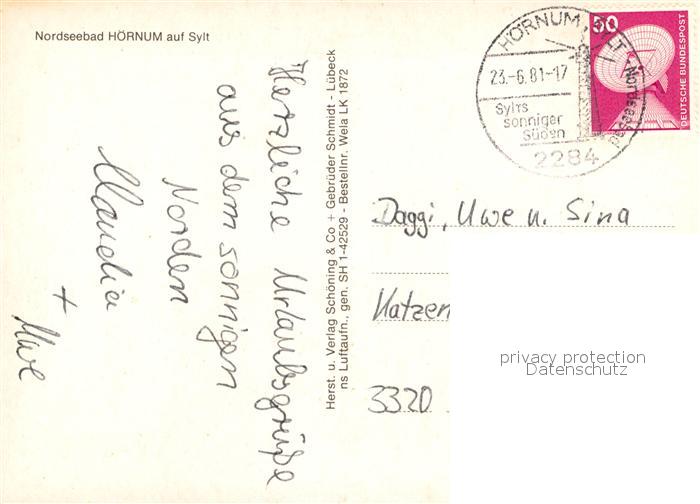 Nordseebad HÖRNUM auf Sylt
Herzliche Urlaubsgrüße
aus dem sonnigen
Norden
Claudia
+ Uwe
Herst. u. Verlag Schöning & Co + Gebrüder Schmidt - Lübeck
ns Luftaufn., gen. SH 1-42529 - Bestellnr. Wela LK 1872
HÖRNUM SYLT · Nordseebad
23.-6.81-17
Sylts
sonniger
Süden
2284
50
DEUTSCHE BUNDESPOST
Daggi, Uwe u. Sina
Katzen
3320
privacy protection
Datenschutz